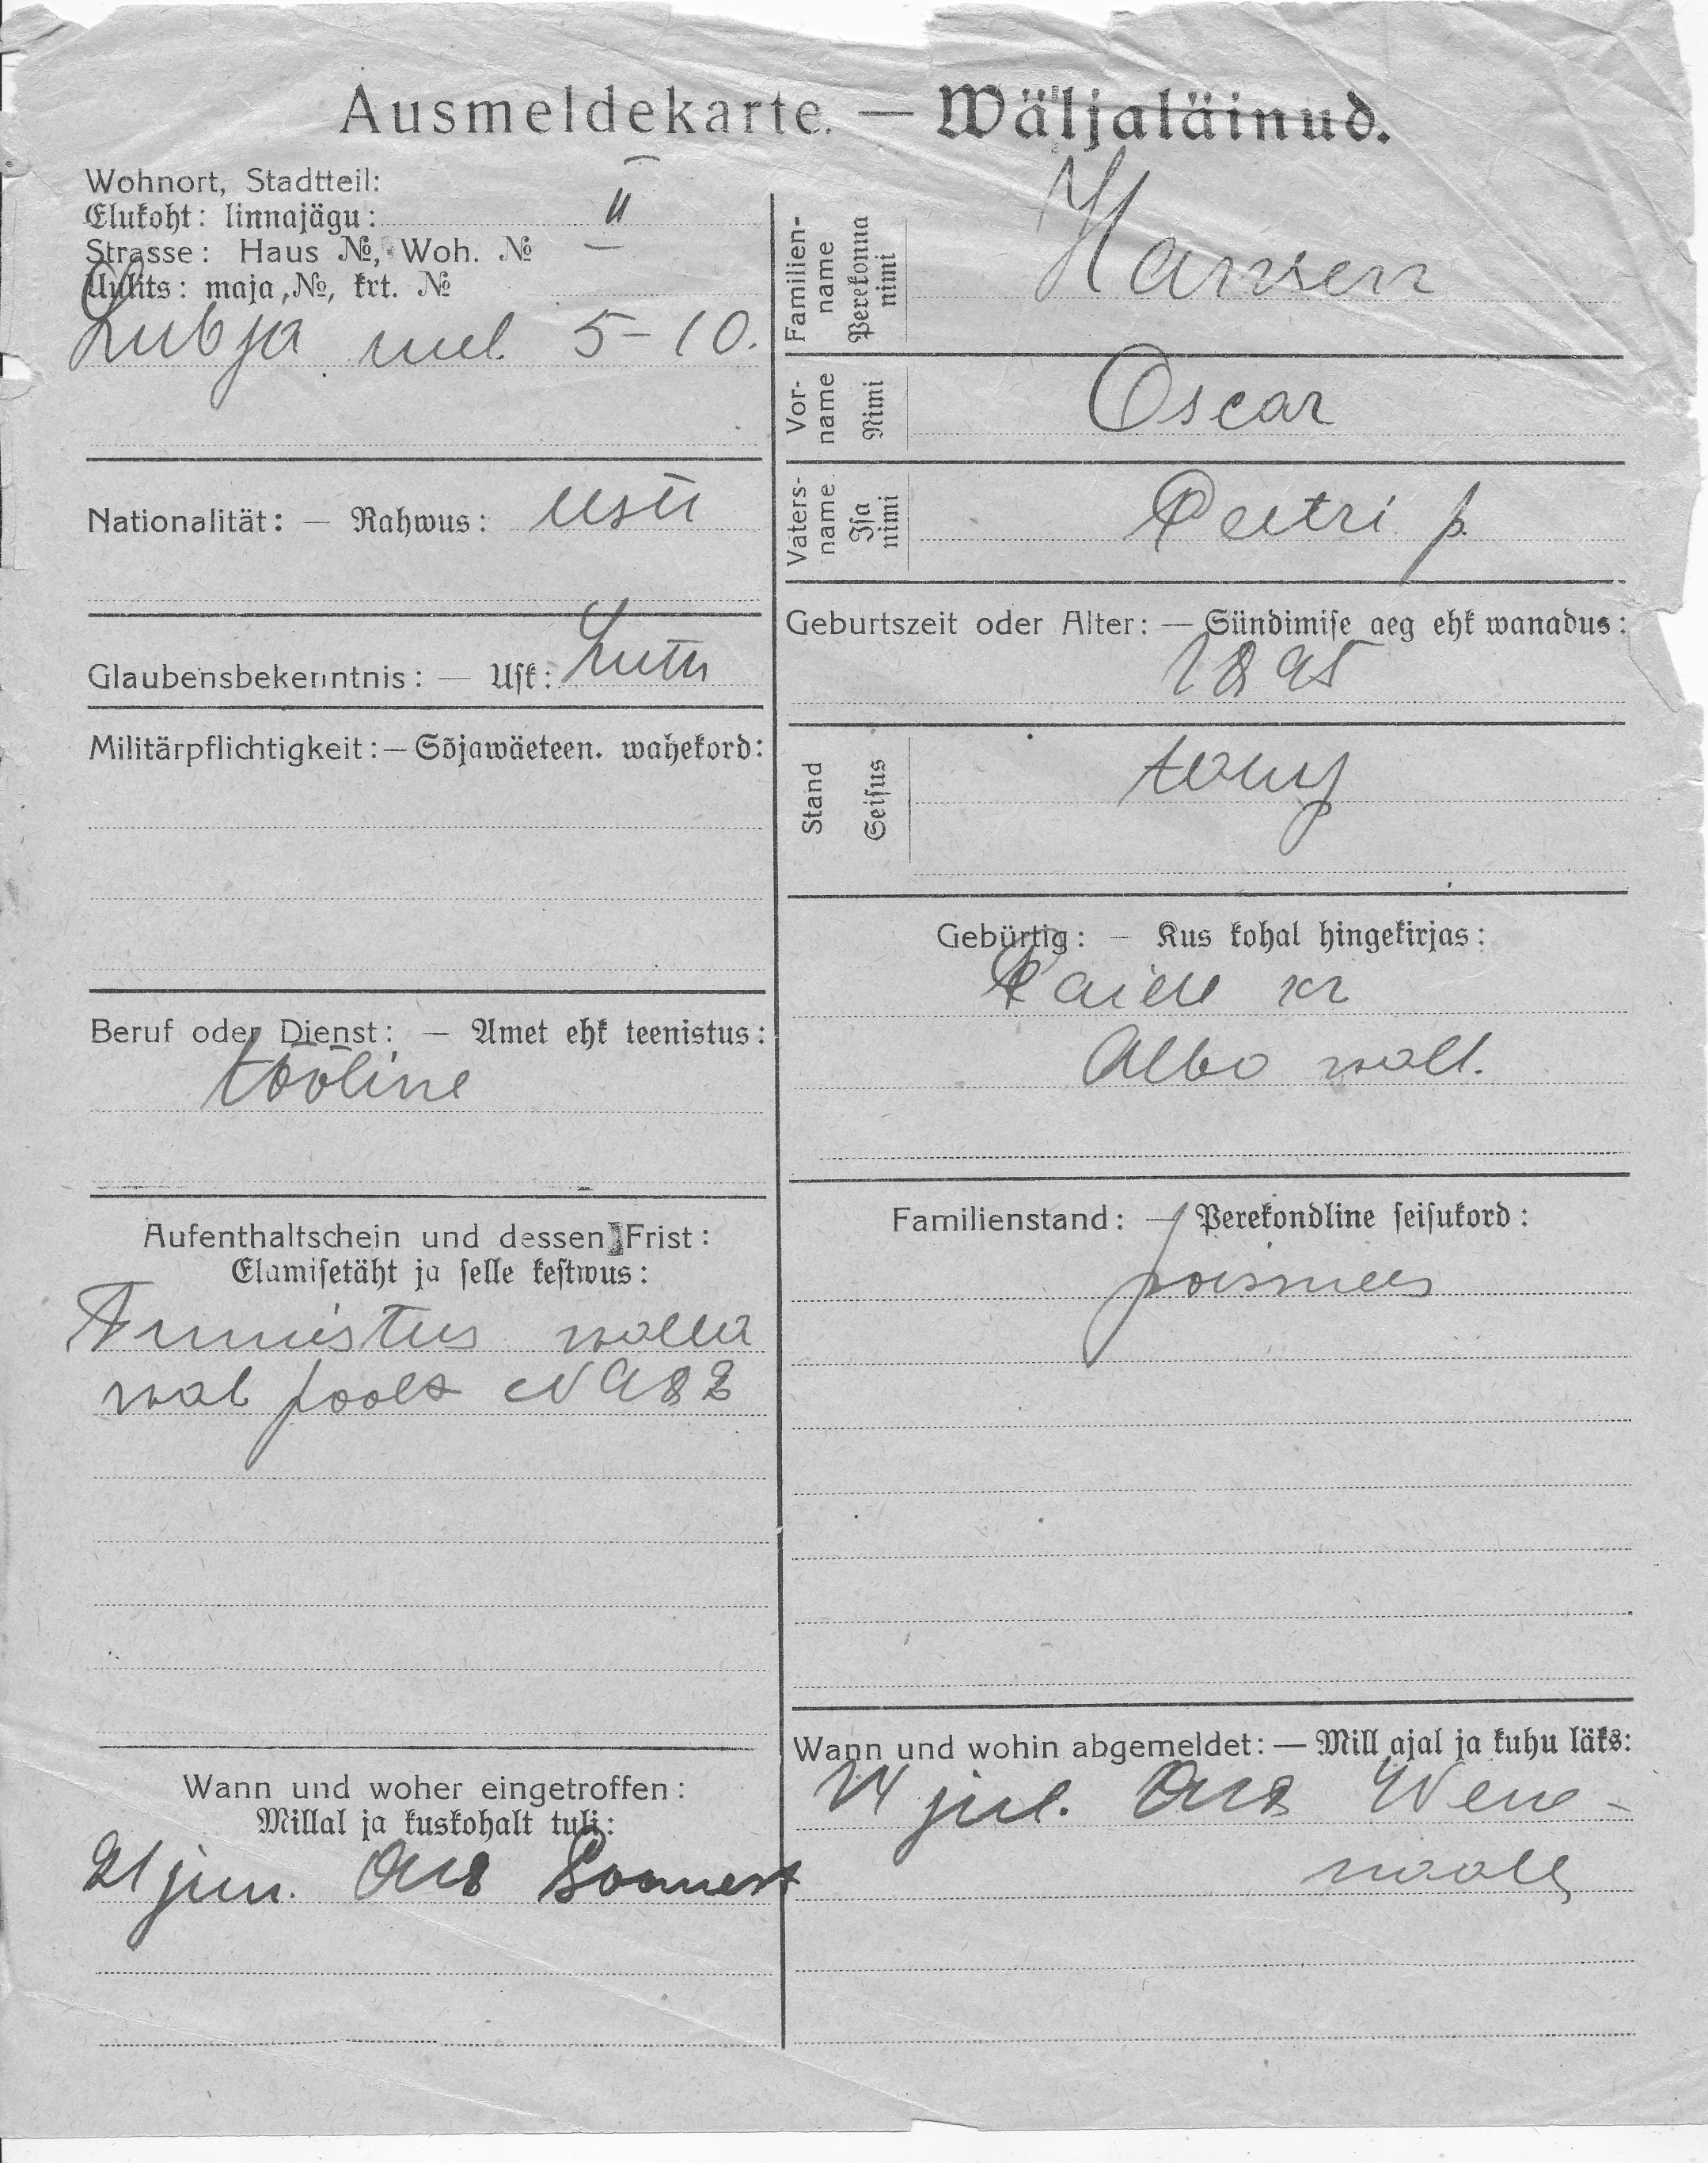 Ausmeldekarte. — Wäljaläinud.
Wohnort, Stadtteil:
Elukoht: linnajägu: II
Strasse: Haus №, Woh. №
Uulits: maja, №, krt. №
Lubja uul. 5-10.
Nationalität: — Rahwus: eesti
Glaubensbekenntnis: — Usk: Luth
Militärpflichtigkeit: — Sõjawäeteen. wahekord:
Beruf oder Dienst: — Amet ehk teenistus:
tööline
Aufenthaltschein und dessen Frist:
Elamisetäht ja selle kestwus:
Tunnistus walla
wal poolt N
Wann und woher eingetroffen:
Millal ja kuskohalt tuli:
21 jun.
Familien-
name
Perekonna
nimi
Hansen
Vor-
name
Nimi
Oscar
Vaters-
name
Isa
nimi
Peetri p.
Geburtszeit oder Alter: — Sündimise aeg ehk wanadus:
1895
Stand
Seisus
talup
Gebürtig: — Kus kohal hingekirjas:
Paide kr
Albo wall.
Familienstand: — Perekondline seisukord:
poismees
Wann und wohin abgemeldet: — Mill ajal ja kuhu läks:
jul. 918 Wene-
maale